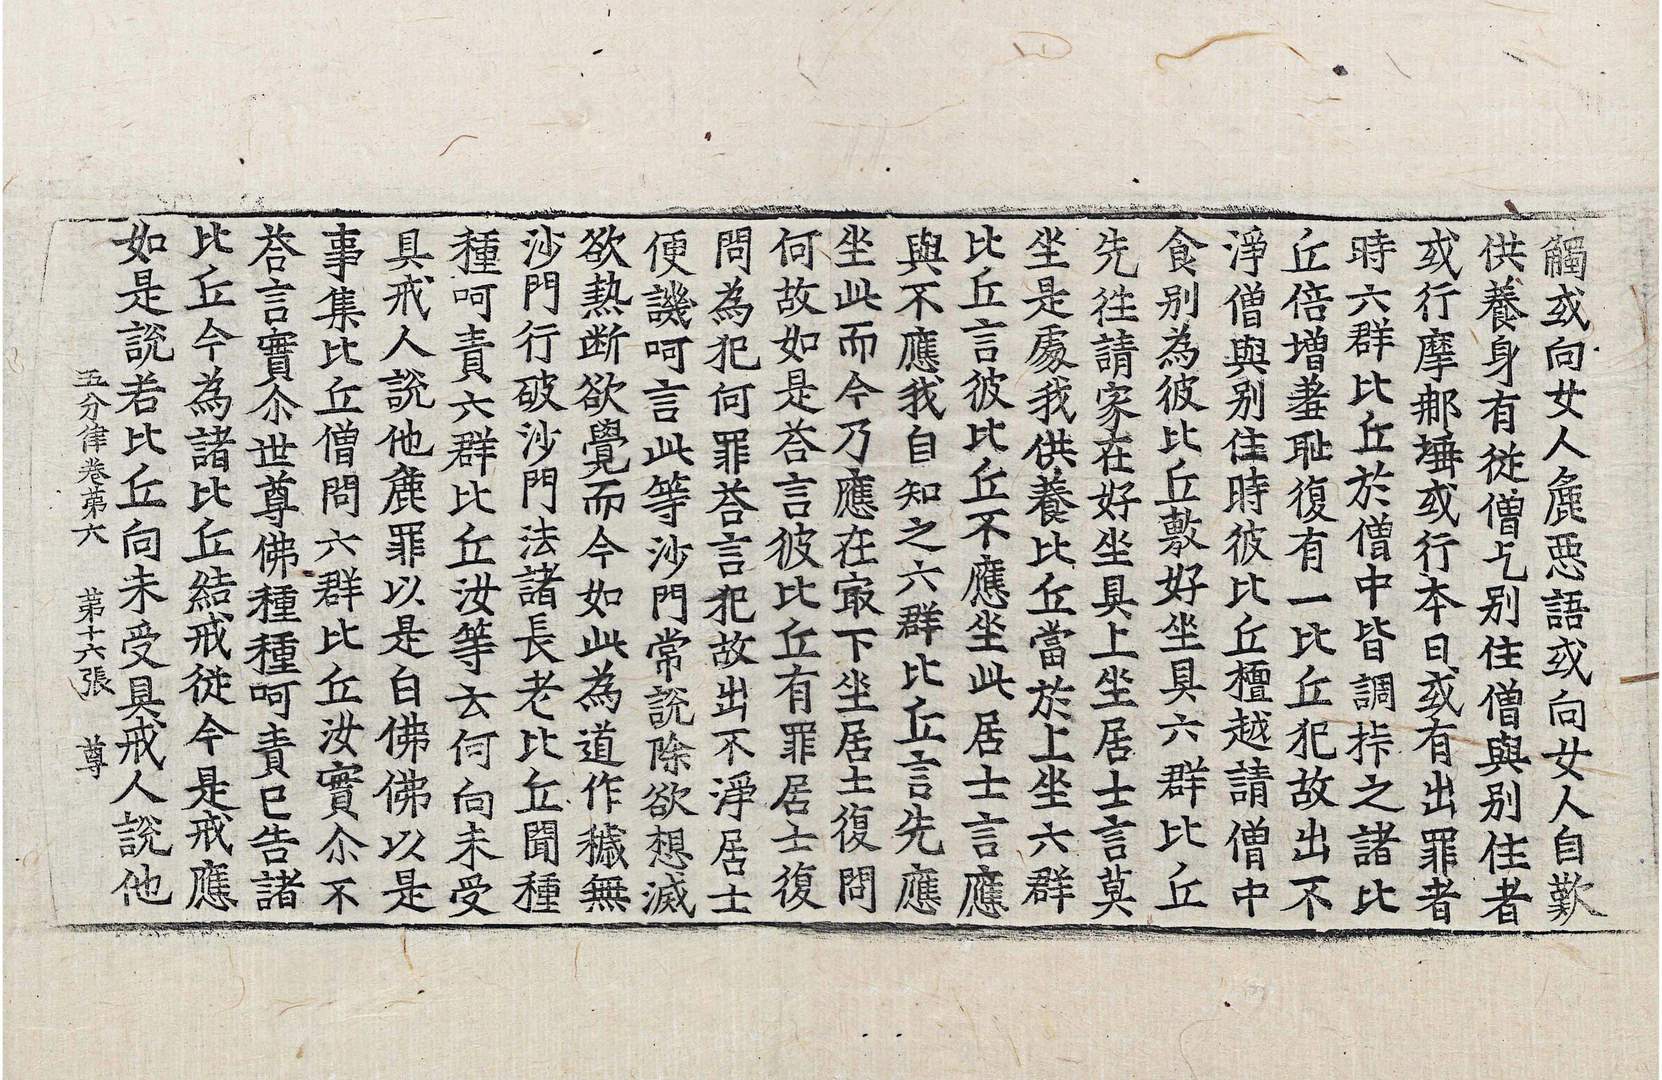 觸或向女人麁惡語或向女人自歎
供養身有從僧乞别住僧與别住者
或行摩那埵或行本日或有出罪者
時六群比丘於僧中皆調㧊之諸比
丘倍增羞恥復有一比丘犯故出不
淨僧與别住時彼比丘檀越請僧中
食别為彼比丘敷好坐具六群比丘
先往請家在好坐具上坐居士言莫
坐是處我供養比丘當於上坐六群
比丘言彼比丘不應坐此居士言應
與不應我自知之六群比丘言先應
坐此而今乃應在㝡下坐居士復問
何故如是荅言彼比丘有罪居士復
問為犯何罪荅言犯故出不淨居士
便譏呵言此等沙門常說除欲想滅
欲熱断欲覺而今如此為道作穢無
沙門行破沙門法諸長老比丘聞種
種呵責六群比丘汝等云何向未受
具戒人說他麁罪以是白佛佛以是
事集比丘僧問六群比丘汝實尒不
荅言實尒世尊佛種種呵責已告諸
比丘今為諸比丘結戒從今是戒應
如是說若比丘向未受具戒人說他
五分律卷苐六 苐十六張 尊